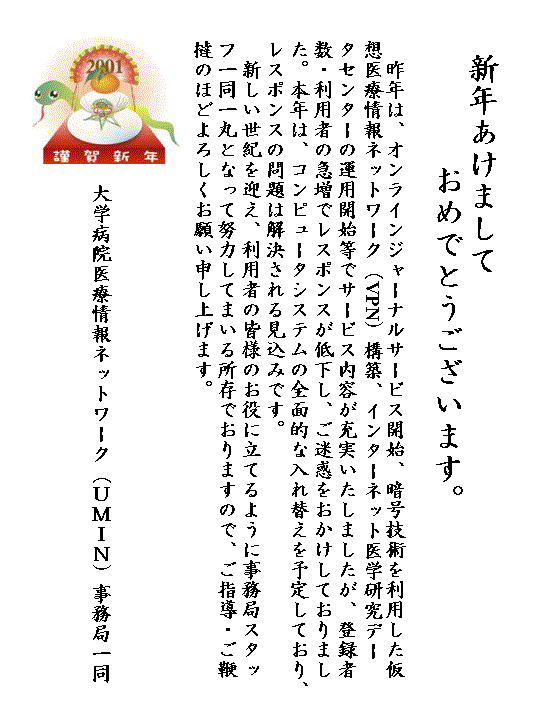 新年あけまして
おめでとうございます。
昨年は、オンラインジャーナルサービス開始、暗号技術を利用した仮
想医療情報ネットワーク（VPN）構築、インターネット医学研究デー
タセンターの運用開始等でサービス内容が充実いたしましたが、登録者
数・利用者の急増でレスポンスが低下し、ご迷惑をおかけしておりまし
た。本年は、コンピュータシステムの全面的な入れ替えを予定しており、
レスポンスの問題は解決される見込みです。
新しい世紀を迎え、利用者の皆様のお役に立てるように事務局スタッ
フ一同一丸となって努力してまいる所存でおりますので、ご指導・ご鞭
撻のほどよろしくお願い申し上げます。
2001
謹賀新年
大学病院医療情報ネットワーク（UMIN）事務局一同